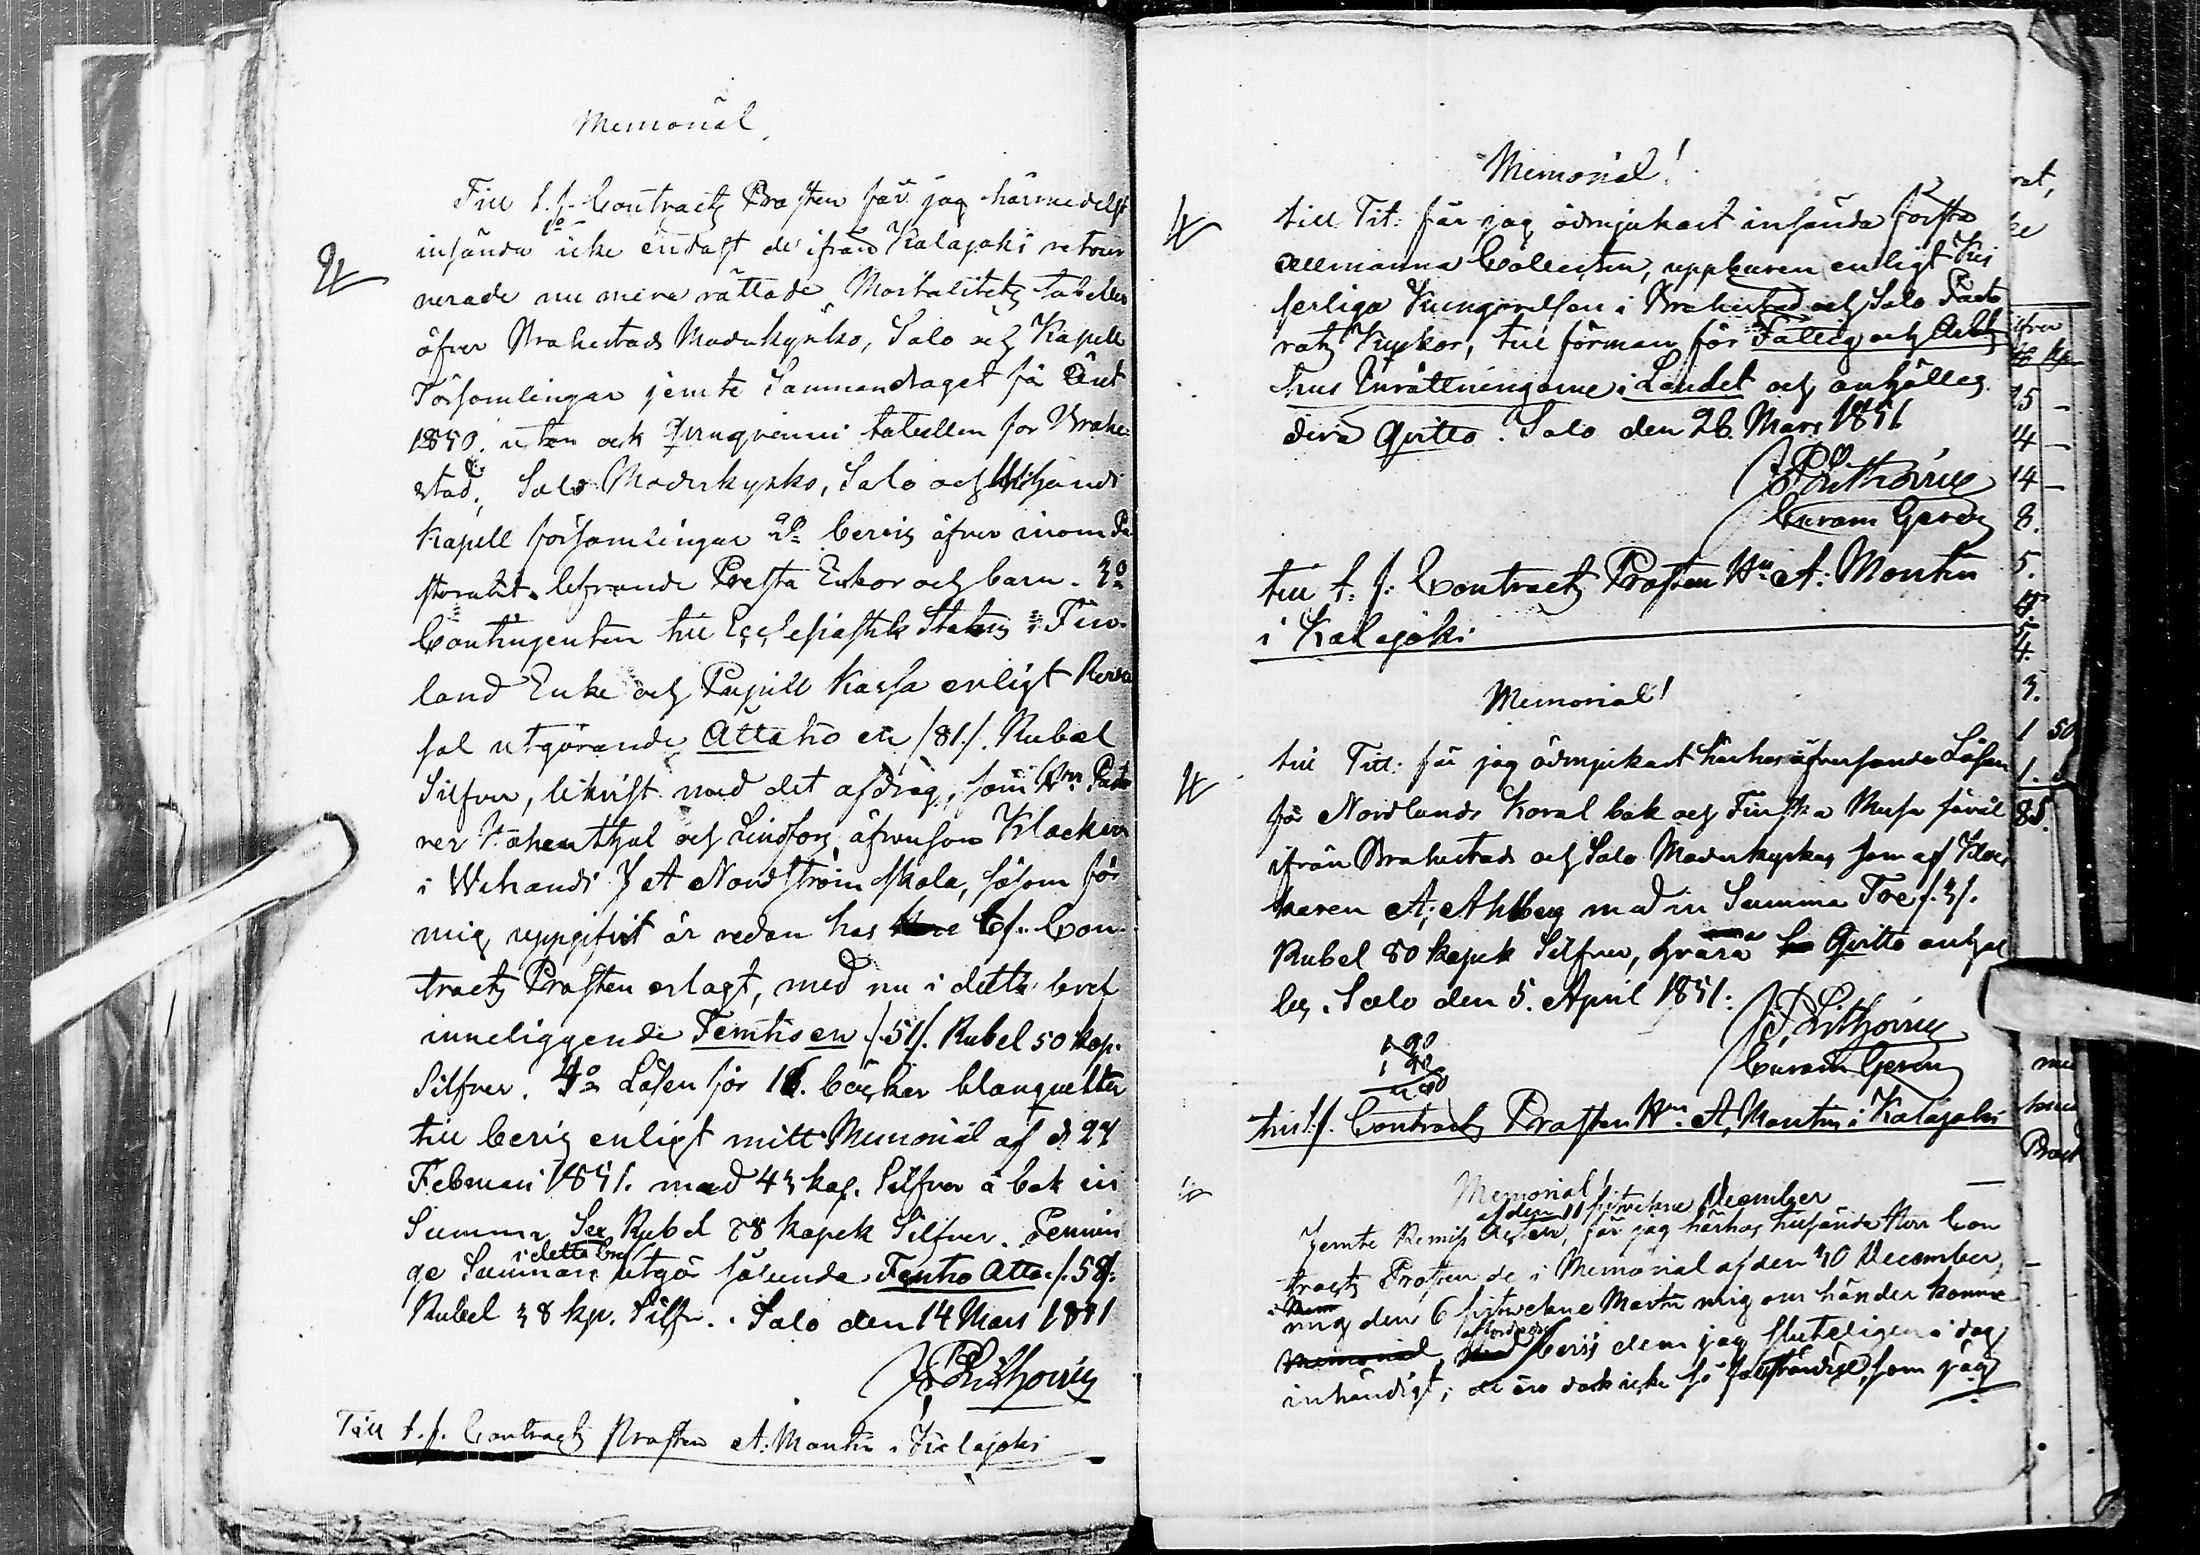 Memorial,
Till t. f. Contracts Prosten får jag härmedelst
insända 1o icke endast de ifrån Kalajoki retour
nerade nu mera rättade Mortalitets tabeller
öfver Brahestads Moderkyrko, Salo och Kapell
Församlingar jemte Sammandraget för året
1850. utan ock tabellen för Brahe
stad, Salo Moderkyrko, Salo och Wihandi
Kapell församlingar 2o bevis öfver inom Pa
storatet lefvande Presta Enkor och barn. 3o
Contingenten till Ecclesiastik Statens i Fin-
land Enke och Pupill Kassa enligt Rever
sal utgörande Åttatio en /81/. Rubel
Silfver, likvist med det afdrag, som Hrr Pasto
rer och Lindfors, äfvensom Klockarn
i Wihandi J A Nordström skola, såsom för
mig uppgifvit är redan hos t.f. Con-
tracts Prosten erlagt, med nu i detta bref
inneliggende Femtio en /.51/. Rubel 50 kop.
Silfver. 4o Lösen för 16. böcker blanquetter
till bevis enligt mitt Memorial af d 24
Februari 1851. med 43 kop. Silfver à bok in
Summa Sex Rubel 88 kopek Silfver. Pennin
ge Summan i detta bref utgör sålunda Femtio Åtta /.58/.
Rubel 38 kp. Silfr. Salo den 14 Mars 1851
J. P. Lithovius
Till t. f. Contracts Prosten A: Montin i Kalajoki
Memorial!
till Tit: får jag ödmjukast insända första
Allmänna Collecten, uppburen enligt Kej
serliga Kungörelsen i Brahestad och Salo Pasto
rats Kyrkor, till förmån för Fattig och Arbets
hus Inrättningarne i Landet och anhålles
derå Qvitto. Salo den 26. Mars 1851
J P Lithovius
Curam Gerens
till t. f. Contracts Prosten Hrn A: Montin
i Kalajoki
Memorial!
till Titt: får jag ödmjukast härhos öfversända Lösen
för Nordlunds Koral bok och Finska Messa såväl
ifrån Brahestads och Salo Moderkyrkas som af Kloc
karen A: Ahlberg med in Summa Tre /.3/.
Rubel 80 kopek Silfver, hvarå Qvitto anhål
les. Salo den 5. April 1851:
J P Lithovius
Curam Gerens
1 90
1 90
till t.f. Contracts Prosten Hrn A, Montin i Kalajoki
Memorial!
af den 11 sistvekne December
Jemte Remiss Acten, får jag härhos tillsända Herr Con
tracts Prosten de i Memorial af den 30 December,
mig den 6 sistvekne Martii mig om händer komne
Memorial, affordrade bevis dem jag sluteligen i dag
inhändigt; de äro dock icke så fullständige som jag